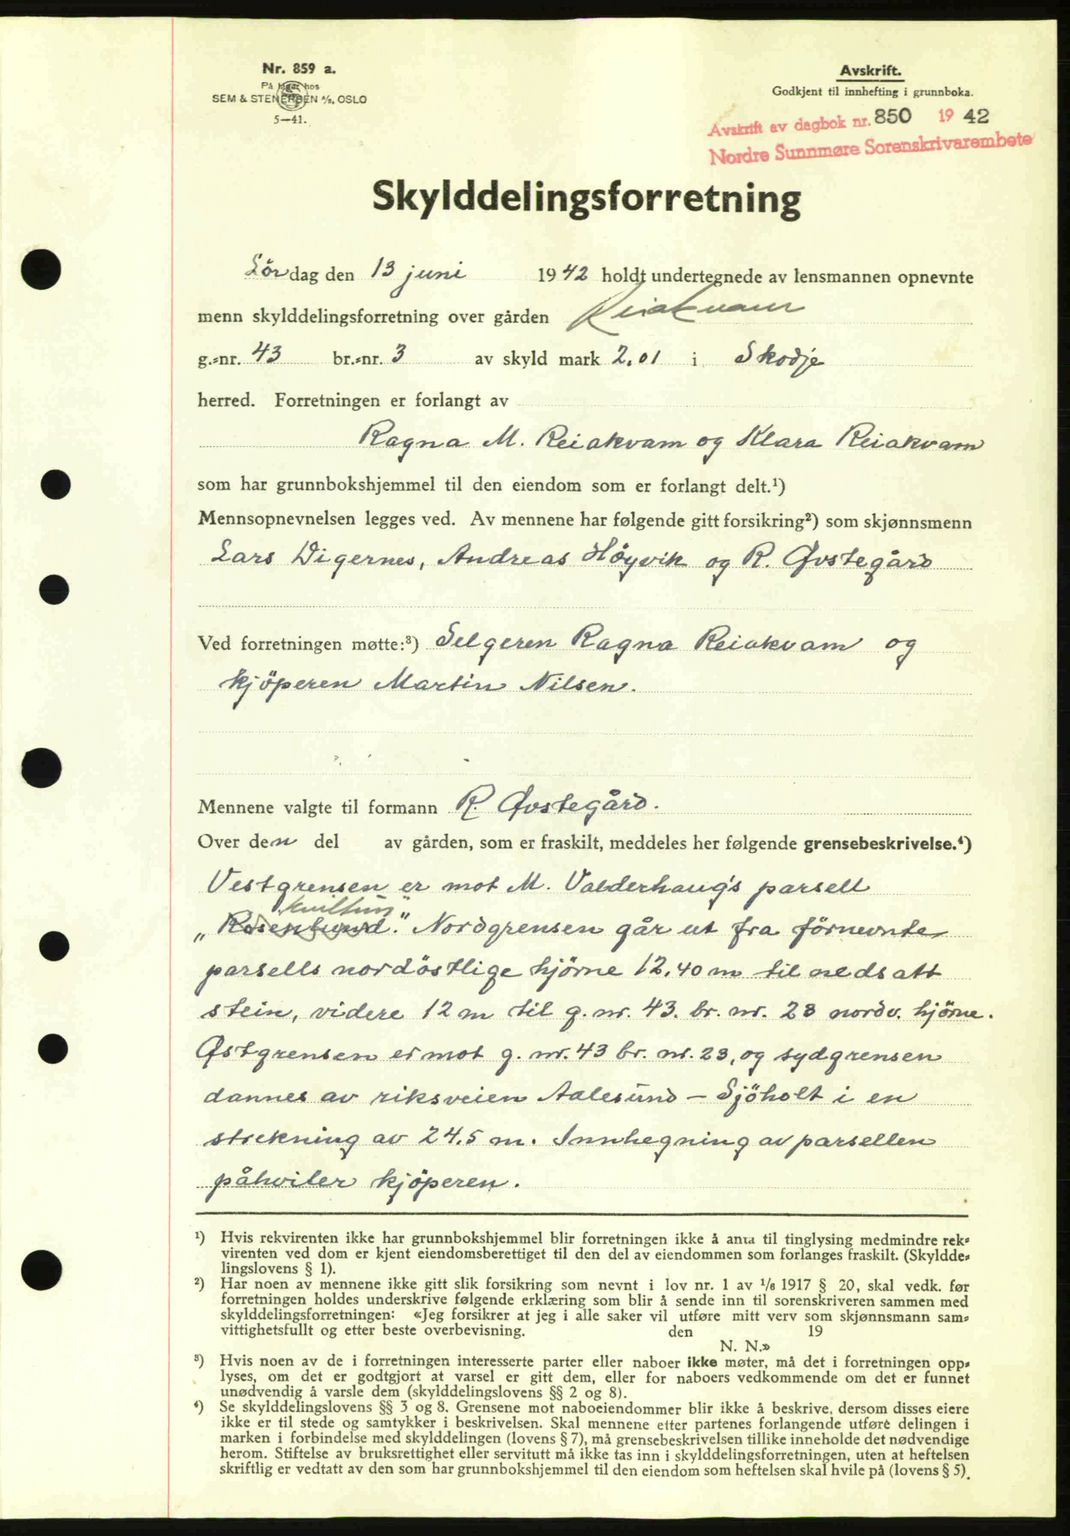 Nr. 859 a.
På lager hos
SEM & STENERSEN A/S, OSLO
5—41.
Avskrift.
Godkjent til innhefting i grunnboka.
Avskrift av dagbok nr. 850 1942
Nordre Sunnmøre Sorenskrivarembete
Skylddelingsforretning
Lördag den 13 juni 1942 holdt undertegnede av lensmannen opnevnte
menn skylddelingsforretning over gården Reiakvam
g.-nr. 43 br.-nr. 3 av skyld mark 2.01 i Skodje
herred. Forretningen er forlangt av
Ragna M. Reiakvam og Klara Reiakvam
som har grunnbokshjemmel til den eiendom som er forlangt delt.¹)
Mennsopnevnelsen legges ved. Av mennene har følgende gitt forsikring²) som skjønnsmenn
Lars Digernes, Andreas Höyvik og R. Øvstegård
Ved forretningen møtte:³) Selgeren Ragna Reiakvam og
kjöperen Martin Nilsen.
Mennene valgte til formann R. Øvstegård.
Over den del av gården, som er fraskilt, meddeles her følgende grensebeskrivelse.⁴)
Vestgrensen er mot M. Valderhaug's parsell
„Rosenlund." Nordgrensen går ut fra förnevnte
parsells nordöstlige hjörne 12,40 m til nedsatt
stein, videre 12 m til g. nr. 43. br. nr. 23 nordv. hjörne.
Østgrensen er mot g. nr. 43 br. nr. 23, og sydgrensen
dannes av riksveien Aalesund – Sjöholt i en
strekning av 24.5 m. Innhegning av parsellen
påhviler kjöperen.
¹) Hvis rekvirenten ikke har grunnbokshjemmel blir forretningen ikke å anta til tinglysing medmindre rek-
virenten ved dom er kjent eiendomsberettiget til den del av eiendommen som forlanges fraskilt. (Skyldde-
lingslovens § 1).
²) Har noen av mennene ikke gitt slik forsikring som nevnt i lov nr. 1 av ¹/₆ 1917 § 20, skal vedk. før
forretningen holdes underskrive følgende erklæring som blir å sende inn til sorenskriveren sammen med
skylddelingsforretningen: «Jeg forsikrer at jeg i alle saker vil utføre mitt verv som skjønnsmann sam-
vittighetsfullt og etter beste overbevisning. den 19
N. N.»
³) Hvis noen av de i forretningen interesserte parter eller naboer ikke møter, må det i forretningen opp-
lyses, om det er godtgjort at varsel er gitt dem, eller for naboers vedkommende om det er funnet
unødvendig å varsle dem (skylddelingslovens §§ 2 og 8).
⁴) Se skylddelingslovens §§ 3 og 8. Grensene mot naboeiendommer blir ikke å beskrive, dersom disses eiere
ikke er til stede og samtykker i beskrivelsen. Skal mennene etter partenes forlangende utføre delingen i
marken i forbindelse med skylddelingen (lovens § 7), må grensebeskrivelsen tillike inneholde det nødvendige
herom. Stiftelse av bruksrettighet eller servitutt må ikke tas inn i skylddelingsforretningen, uten at heftelsen
skriftlig er vedtatt av den som har grunnbokshjemmel til den eiendom som heftelsen skal hvile på (lovens § 5).